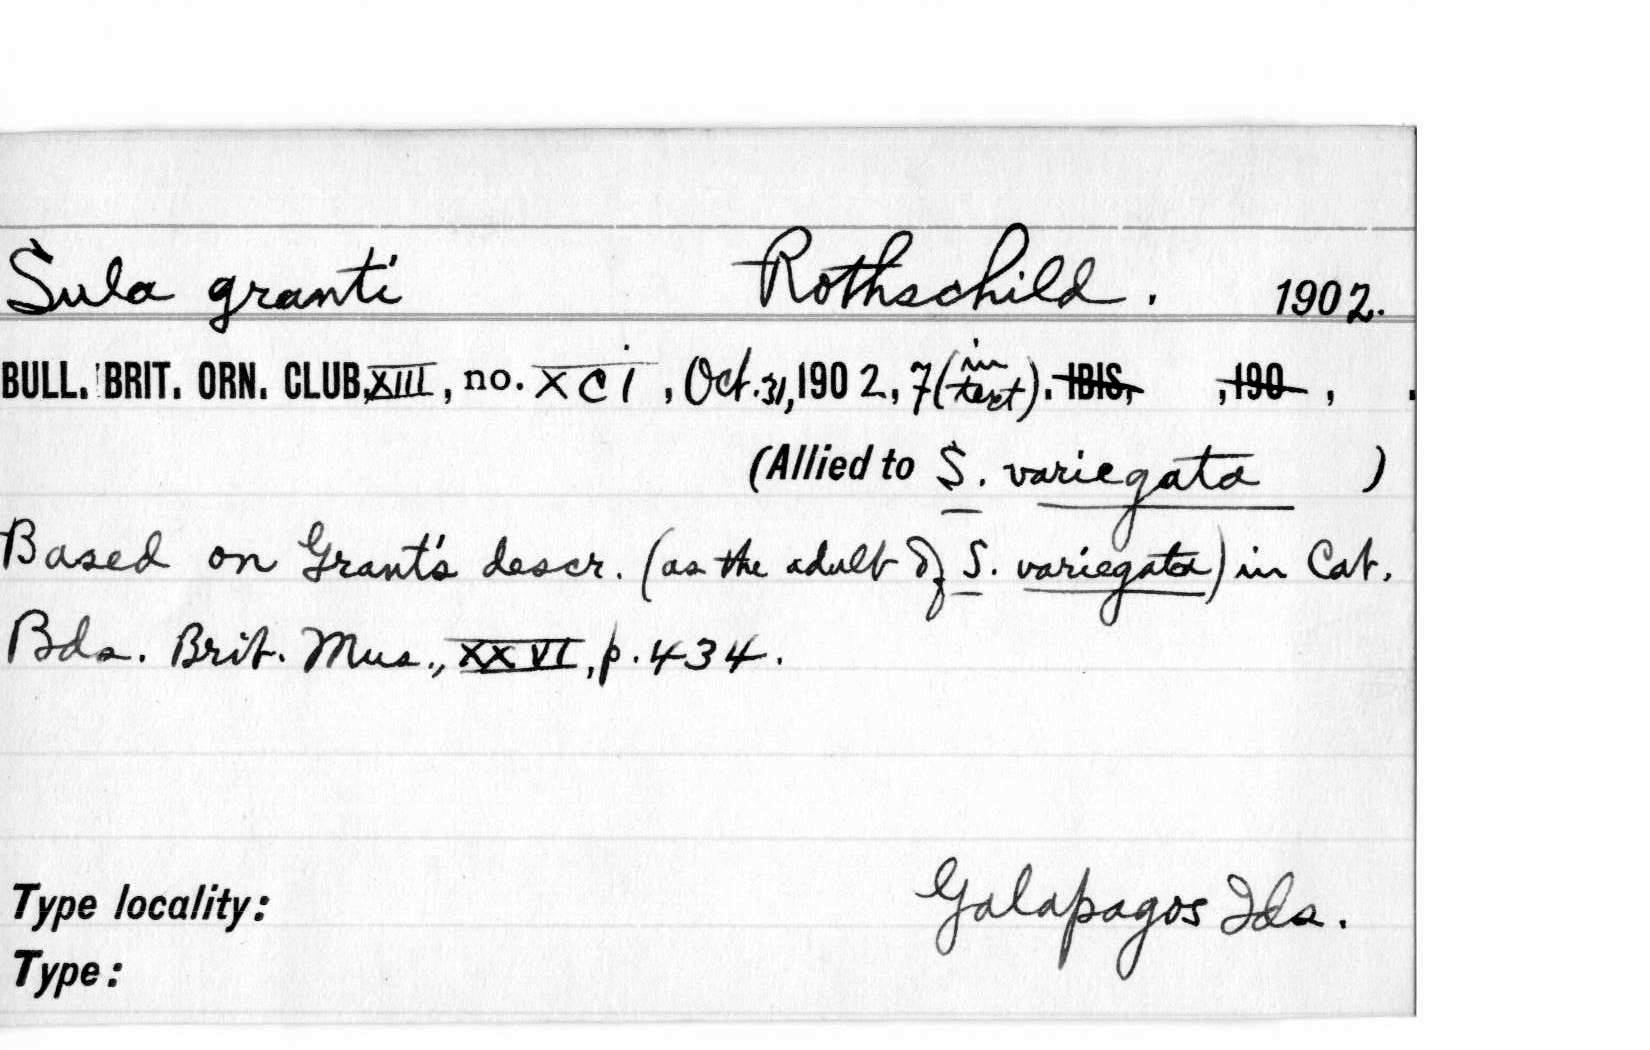 Sula granti Rothschild. 1902.
BULL. BRIT. ORN. CLUB, XIII, no. XCI, Oct. 31, 1902, 7 (in text). IBIS, , 190 , .
(Allied to S. variegata )
Based on Grant's descr. (as the adult of S. variegata) in Cat.
Bds. Brit. Mus., XXVI, p. 434.
Type locality: Galapagos Ids.
Type: